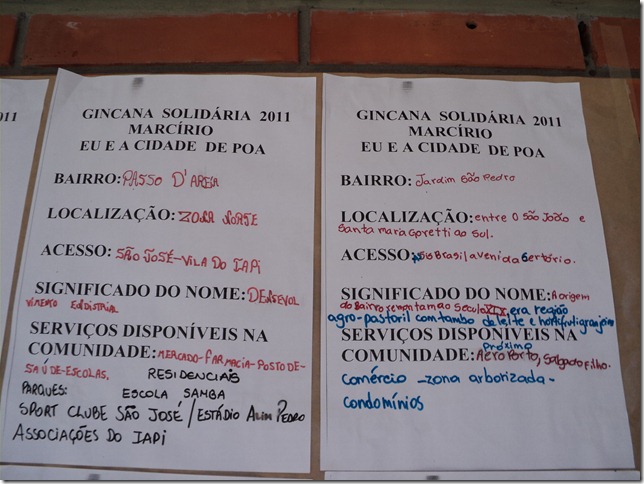 011
GINCANA SOLIDÁRIA 2011
MARCÍRIO
EU E A CIDADE DE POA
BAIRRO: PASSO D'AREIA
LOCALIZAÇÃO: ZONA NORTE
ACESSO: SÃO JOSÉ-VILA DO IAPI
SIGNIFICADO DO NOME: DESENVOL
VIMENTO
SERVIÇOS DISPONÍVEIS NA
COMUNIDADE: MERCADO-FARMACIA-POSTO DE-
SAÚDE-ESCOLAS. RESIDENCIAIS
PARQUES: ESCOLA SAMBA
SPORT CLUBE SÃO JOSÉ / ESTÁDIO ALIM PEDRO
ASSOCIAÇÕES DO IAPI
GINCANA SOLIDÁRIA 2011
MARCÍRIO
EU E A CIDADE DE POA
BAIRRO: Jardim São Pedro
LOCALIZAÇÃO: entre O São João e
Santa maria Goretti ao Sul.
ACESSO: Brasil avenida Sertório.
SIGNIFICADO DO NOME: A origem
do Bairro remontam ao Seculo XIX, era região
agro-pastoril com tambo de leite e hortifrutigranjeiro
SERVIÇOS DISPONÍVEIS NA
COMUNIDADE: próximo AeroPorto, Salgado filho.
comércio - zona arborizada -
condomínios